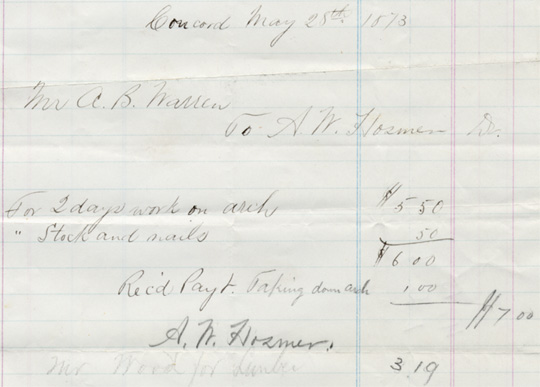 Concord May 28th 1873
Mr A. B. Warren
To A. W. Hosmer Dr.
For 2 days work on arch $5 50
" Stock and nails 50
$6 00
Rec'd Payt. Taking down arch 1,00
$7 00
A. W. Hosmer.
Mr Wood for Lumber 3.19